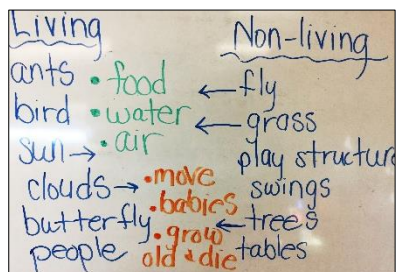 Living
Non-living
ants
bird
sun →
clouds →
butterfly
people
• food
• water
• air
• move
• babies
• grow
old & die
← fly
← grass
play structure
swings
← trees
tables